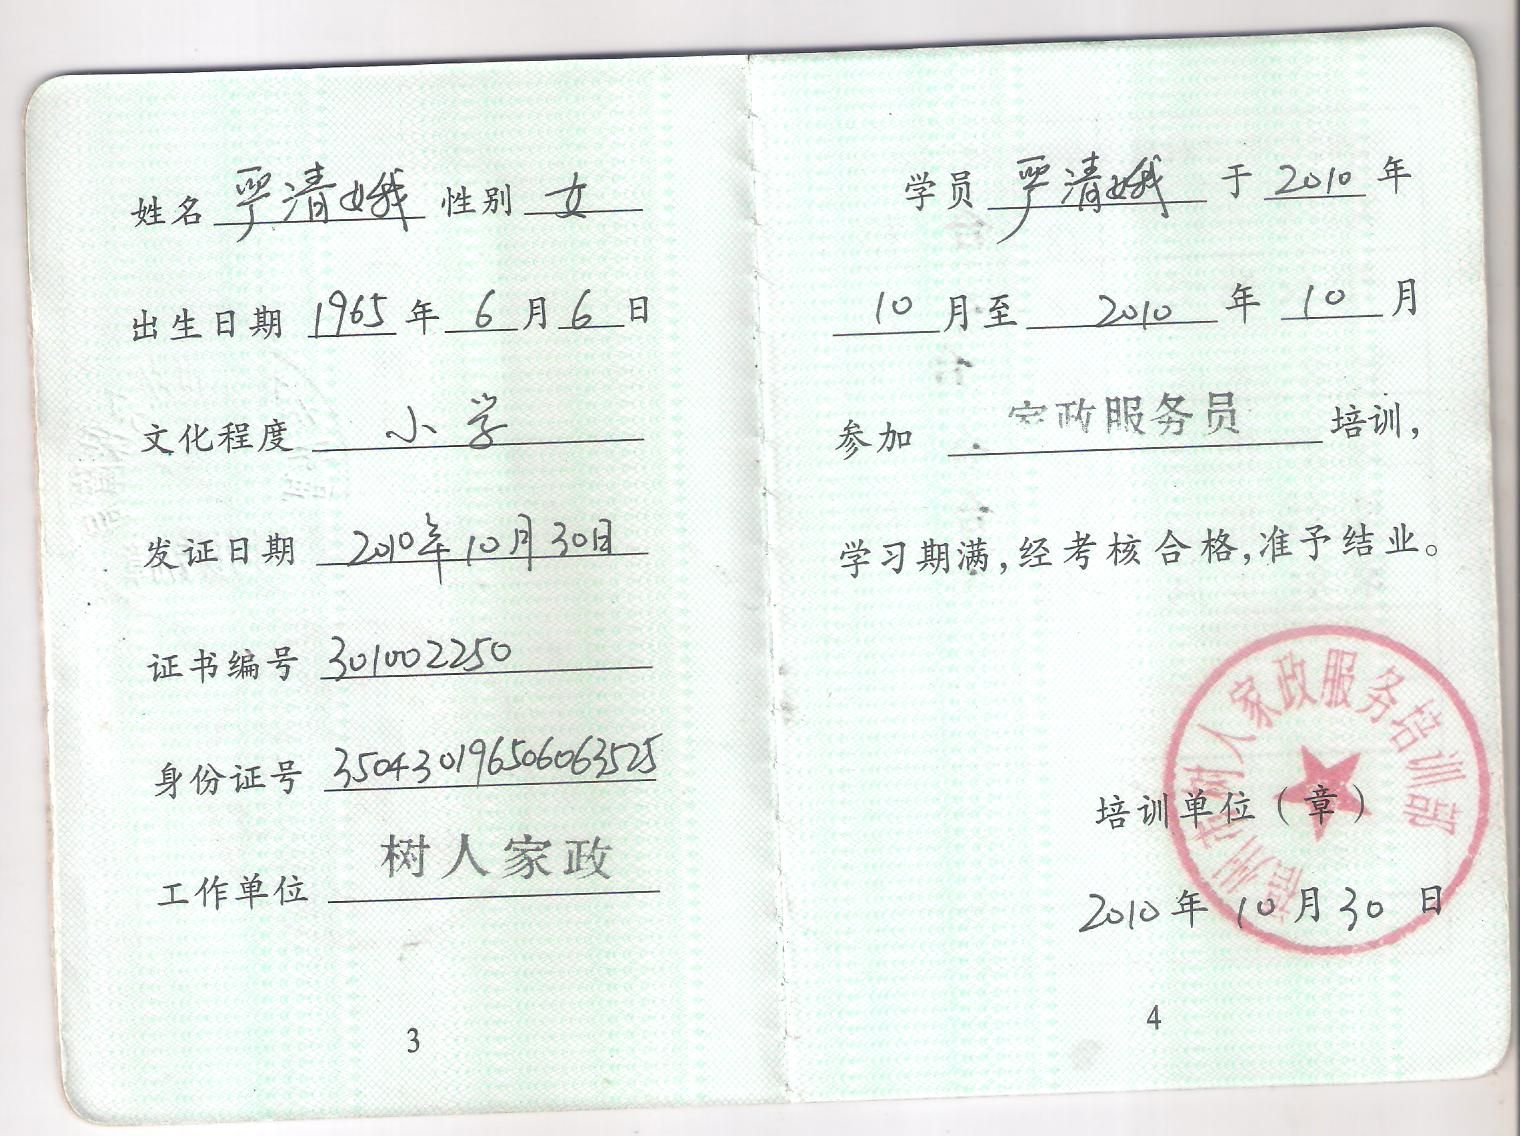 姓名 严清娥 性别 女
出生日期 1965 年 6 月 6 日
文化程度 小学
发证日期 2010年10月30日
证书编号 301002250
身份证号 350430196506063525
工作单位 树人家政
3
学员 严清娥 于 2010 年
10 月至 2010 年 10 月
参加 家政服务员 培训,
学习期满,经考核合格,准予结业。
福州市树人家政服务培训部
培训单位(章)
2010 年 10 月 30 日
4